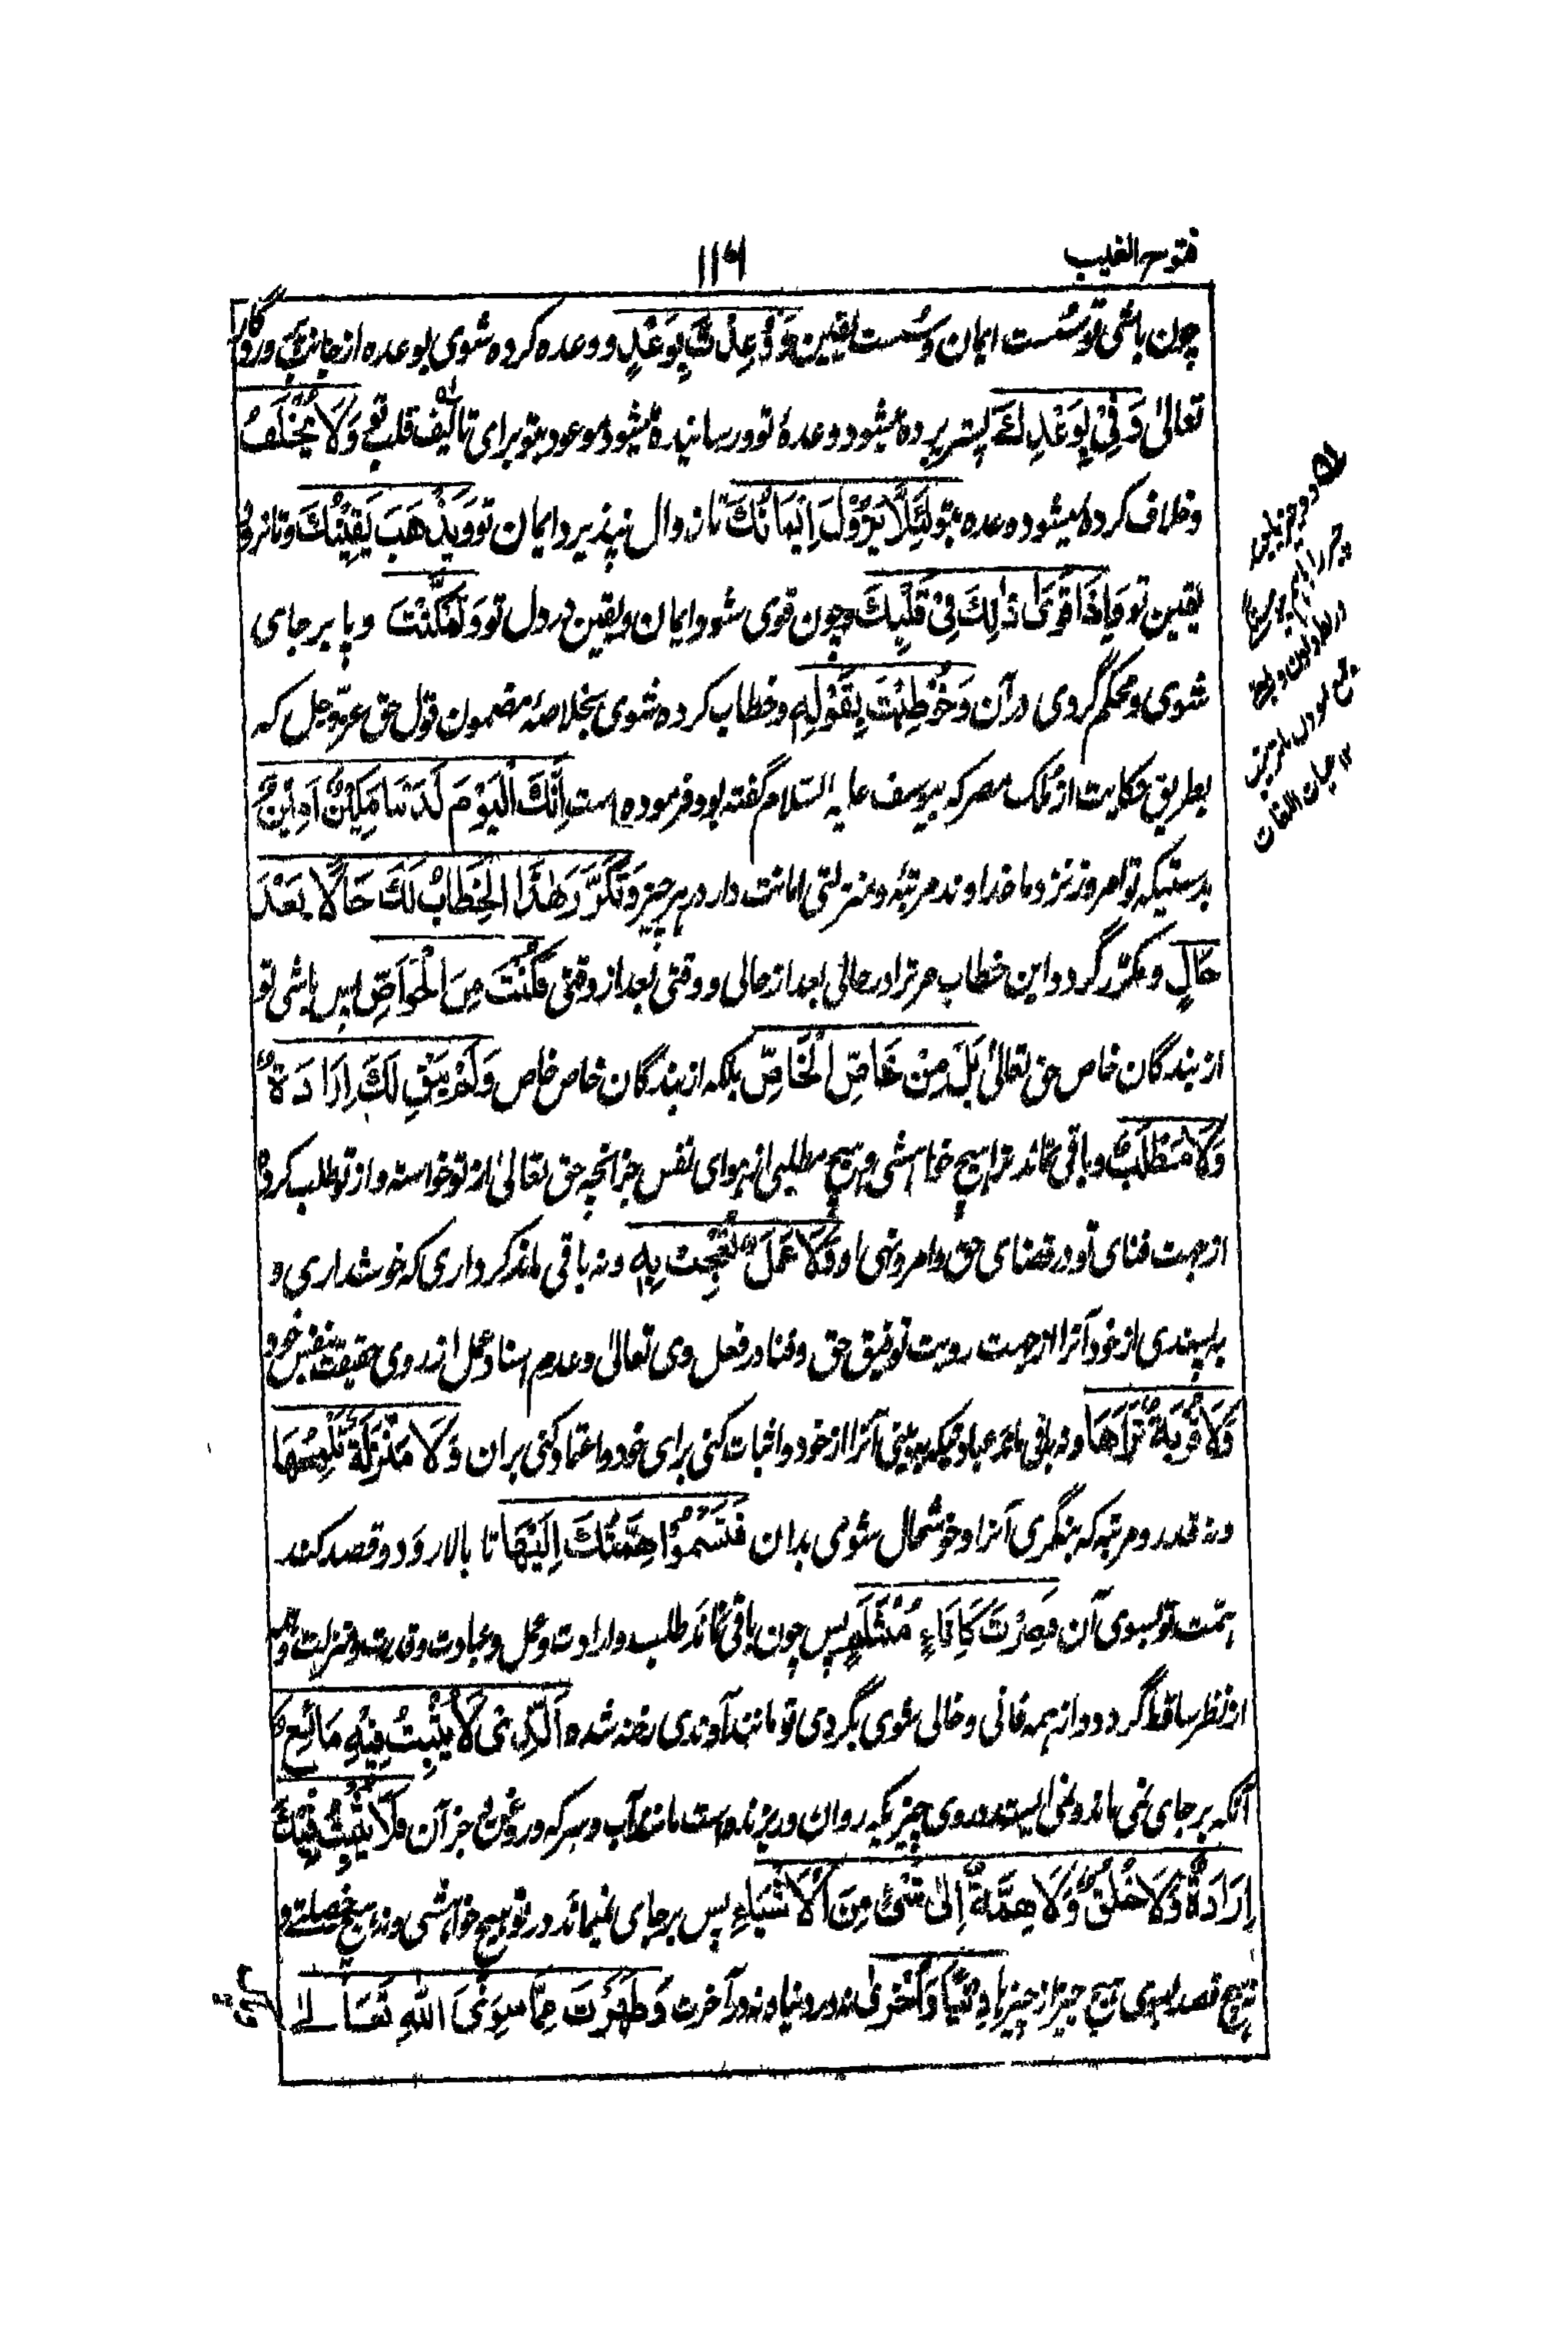 فتوح الغیب
۱۱۶
چون باشی تو سُست ایمان و سُست یقین وَ وُعِدْتَ بِوَعْدٍ و وعده کرده شوی بوعده از جانب پروردگار
تعالیٰ وُفِّیَ بِوَعْدِكَ پس بسر برده میشود وعدهٔ تو و رسانیده میشود موعود بتو برای تالیف قلب تو وَلَا یُخْلَفُ
و خلاف کرده نمیشود وعده بتو لِئَلَّا یَزُوْلَ اِیْمَانُكَ تا زوال نپذیرد ایمان تو وَیَذْهَبَ یَقِیْنُكَ و تا نرود
یقین تو وَاِذَا قَوِیَ ذٰلِكَ فِیْ قَلْبِكَ و چون قوی شود ایمان و یقین در دل تو وَتَمَكَّنْتَ و پا بر جای
شوی و محکم گردی در آن وَخُوْطِبْتَ بِقَوْلِهٖ و خطاب کرده شوی بخلاصهٔ مضمون قول حق عزّوجل که
بطریق حکایت از ملک مصر که بیوسف علیه السلام گفته بود فرموده است اِنَّكَ الْیَوْمَ لَدَیْنَا مَكِیْنٌ اَمِیْنٌ
بدرستیکه تو امروز نزد ما خداوند مرتبهٔ و منزلتی امانت دار در هر چیز وَتَكَرَّرَ هٰذَا الْخِطَابُ لَكَ حَالًا بَعْدَ
حَالٍ و مکرّر گردد این خطاب مر ترا در حالی بعد از حالی و وقتی بعد از وقتی فَكُنْتَ مِنَ الْخَوَاصِّ پس باشی تو
از بندگان خاص حق تعالیٰ بَلْ مِنْ خَاصِّ الْخَاصِّ بلکه از بندگان خاص خاص وَلَمْ یَبْقِ لَكَ اِرَادَةٌ
وَلَا مَطْلَبٌ و باقی نماند ترا هیچ خواهشی و هیچ مطلبی از هوای نفس جز آنچه حق تعالیٰ از تو خواسته و از تو طلب کرده
از جهت فنای تو در قضای حق و امر و نهی او وَلَا عَمَلٌ تُعْجَبُ بِهٖ و نه باقی ماند کرداری که خوشداری و
به پسندی از خود آنرا از جهت رویت توفیق حق و فنا در فعل وی تعالیٰ و عدم اسناد عمل از روی حقیقت بنفس خود
وَلَا قُرْبَةٌ تَرَاهَا و نه باقی ماند عبادتیکه به بینی آنرا از خود و اثبات کنی برای خود و اعتماد کنی بران وَلَا مَنْزِلَةٌ تَلْمَحُهَا
و نه قدر و مرتبه که بنگری آنرا و خوشحال شوی بدان فَتَسْمُوْا هِمَّتُكَ اِلَیْهَا تا بالا رود و قصد کند
همت تو بسوی آن فَصِرْتَ كَاِنَاءٍ مُنْثَلِمٍ پس چون باقی نماند طلب و ارادت و عمل و عبادت و قربت و منزلت و همه
از نظر ساقط گردد و از همه فانی و خالی شوی بگردی تو مانند آوندی رخنه شده اَلَّذِیْ لَا یَثْبُتُ فِیْهِ مَائِعٌ
آنکه بر جای نمی ماند و نمی ایستد در وی چیزیکه روان و ریزنده است مانند آب و سرکه و روغن جز آن فَلَا یَثْبُتُ فِیْكَ
اِرَادَةٌ وَلَا خُلُقٌ وَلَا هِمَّةٌ اِلٰی شَیْءٍ مِنَ الْاَشْیَاءِ پس بر جای نمیماند در تو هیچ خواهشی و نه هیچ خصلتی و
هیچ قصد بسوی هیچ چیز از چیزها دُنْیًا وَاُخْرٰی نه در دنیا و نه در آخرت وَطَهُرْتَ مِمَّا سِوَی اللّٰهِ تَعَالٰے
۱۲ حیات اللغات